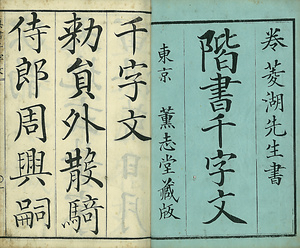 巻菱湖先生書
階書千字文
東京 薫志堂藏版
千字文
勅負外散騎
侍郎周興嗣